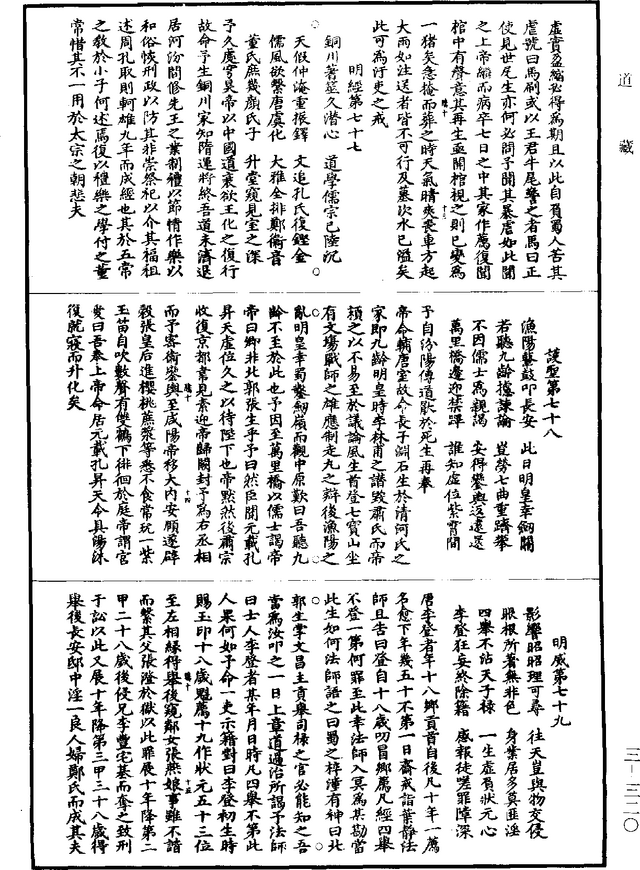 道藏
虛實盈縮必得為期且以此自資蜀人苦其
虐號曰馬刷或以王君牛尾警之者馬曰正
使見世尼生亦何必問予聞其暴虐如此聞
之上帝縮而病卒七日之中其家作薦復聞
棺中有聲意其再生亟開棺視之則已變為
一猪矣急掩而葬之時天氣晴爽喪車方起
大雨如注送者皆不可行及墓坎水已溢矣
此可為汙吏之戒
明經第七十七
銅川著筵久潛心 道學儒宗已陸沉
天假仲淹重振鐸 文追孔氏復鏗金
儒風欲繫唐虞化 大雅全排鄭衛音
董氏庶幾顏氏子 升堂窺見室之深
予久處穹昊帝以中國道衰欲王化之復行
故命予生銅川家知隋運將終吾道未濟退
居河汾間修先王之業制禮以節情作樂以
和俗恢刑政以防其非崇祭祀以介其福祖
述周孔取則軻雄九年而成經也其於五常
之教於小子何述焉復以禮樂之學付之董
常惜其不一用於太宗之朝悲夫
護聖第七十八
漁陽鼙鼓叩長安 此日明皇幸劍關
若聽九齡擄諫論 豈勞七曲重躋攀
不因儒士為親謁 安得鑾輿返還
萬里橋邊迎禁蹕 誰知虛位紫霄間
予自汾陽傳道厭於死生再奉
帝命輔唐室故命長子淵石生於清河氏之
家即九齡明皇時李林甫之譖毀肅氏而帝
頼之以不易至於議論風生首登七寶山坐
有文場厭師之雄應制走丸之辯後漁陽之
亂明皇幸蜀鑾劍嶺而觀中原歎曰吾聽九
齡不至於此也予因至萬里橋以儒士謁帝
帝曰卿非北郭張生乎予曰然臣開元載孔
昇天虛位久之以待陛下也帝黙然後肅宗
收復京都常見素迎帝歸闕封予為右丞相
而予密衛鑾輿至咸陽帝移大內安厭遂辟
穀張皇后進櫻桃蔗漿等悉不食常玩一紫
玉笛自吹數聲有雙鶴下徘徊於庭帝謂官
愛曰吾奉上帝命居元載孔昇天令具湯沐
復就寢而升化矣
明威第七十九
影響昭昭理可尋 往天豈與物交侵
眼根所著無非色 身業居多莫匪淫
四舉不沾天子祿 一生虛負狀元心
李登狂妄終除籍 感報徒嗟罪障深
唐李登者年十八鄉貢首自後凡十年一薦
名愈下年幾五十不第一日齋戒詣葉靜法
師且告曰登自十八歲叨冒鄉薦凡經四舉
不登一第何罪至此幸法師入冥為某勘當
此生如何法師語之曰蜀之梓潼有神曰北
郭生掌文昌主貢舉司祿之官必能知之吾
當為汝叩之一日上章道過治所謁予法師
曰士人李登者其年月日時凡四舉不第此
人果何如予命一吏示籍對曰李登初生時
賜玉印十八歲魁薦十九作狀元五十三位
至左相緣得舉後窺鄰女張燕娘事雖不諧
而繫其父張澄於獄以此罪展十年降第二
甲二十八歲後侵兄李豐宅基而奪之致刑
于訟以此又展十年降第三甲三十八歲得
舉後長安邸中淫一良人婦鄭氏而成其夫
三一三二〇